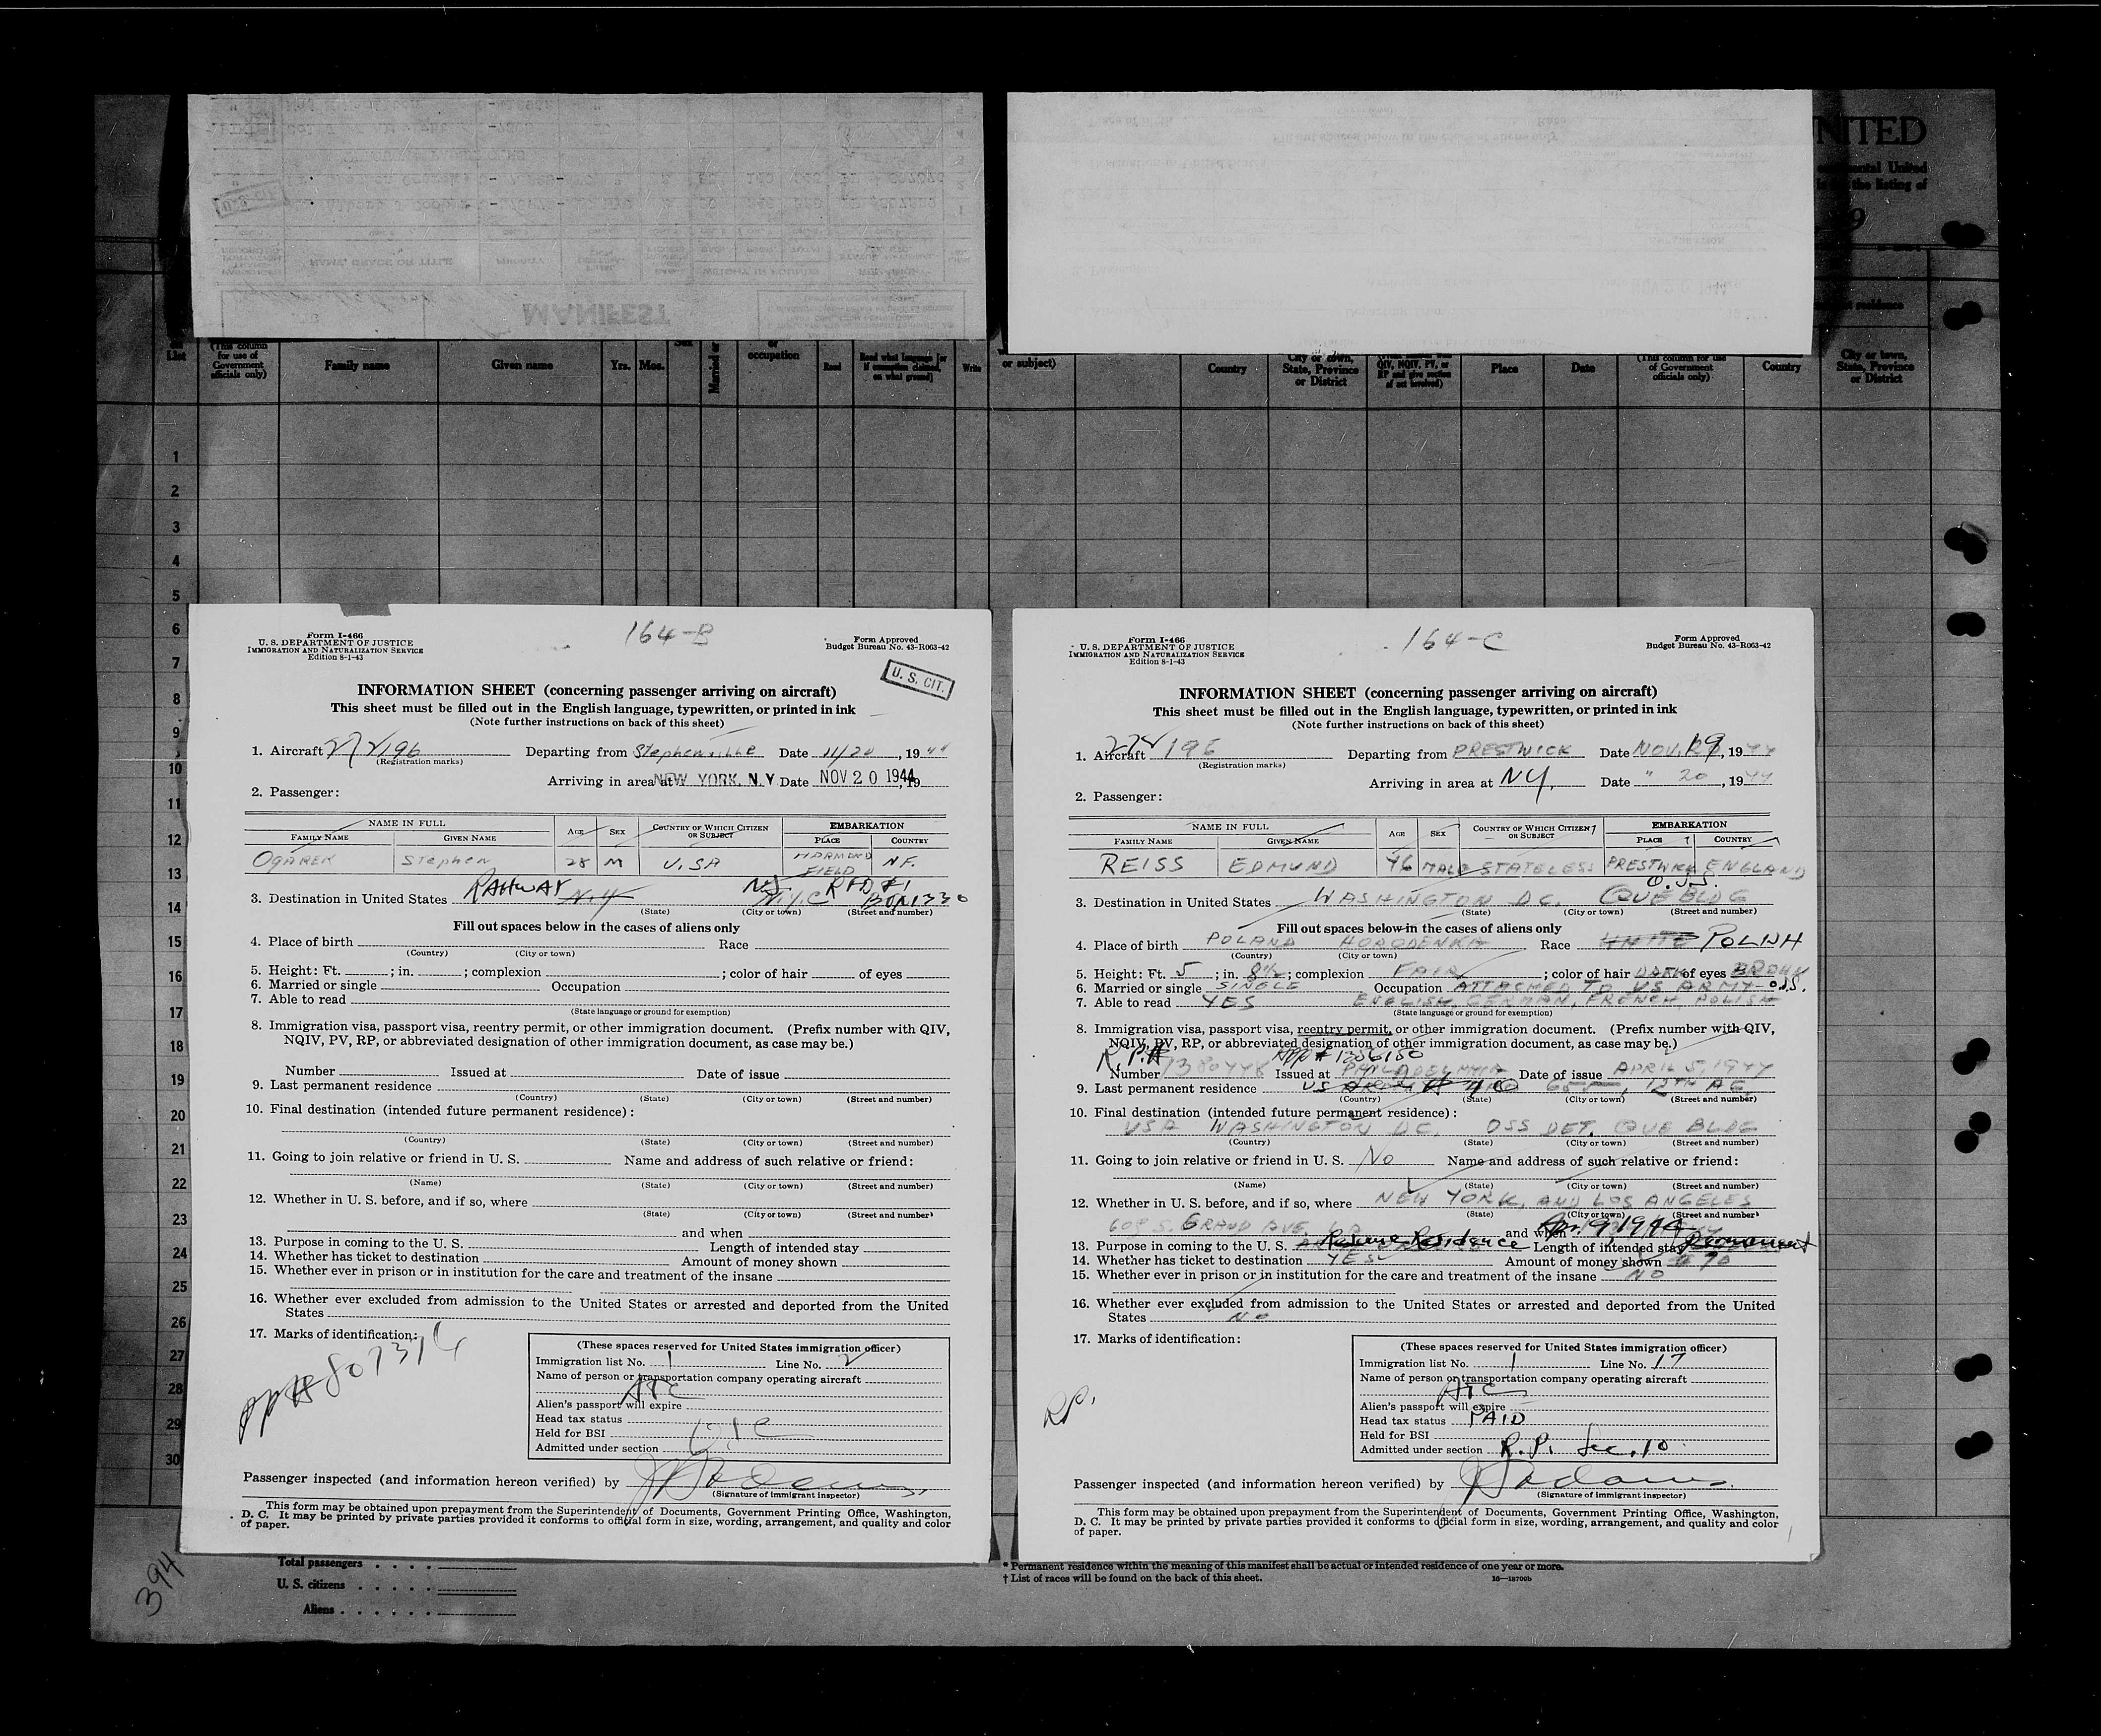 NITED
ental United
the listing of
9
MANIFEST
NAME, GRADE OR TITLE
PRIORITY
WEIGHT IN POUNDS
List
(This column
for use of
Government
officials only)
Family name
Given name
Yrs.
Mos.
Sex
Married or
or
occupation
Read
Read what language [or
if exemption claimed,
on what ground]
Write
or subject)
Country
City or town,
State, Province
or District
QIV, NQIV, PV, or
RP and give section
of act involved)
Place
Date
(This column for use
of Government
officials only)
Country
City or town,
State, Province
or District
1
2
3
4
5
6
7
8
9
10
11
12
13
14
15
16
17
18
19
20
21
22
23
24
25
26
27
28
29
30
Form I-466
U. S. DEPARTMENT OF JUSTICE
IMMIGRATION AND NATURALIZATION SERVICE
Edition 8-1-43
164-B
Form Approved
Budget Bureau No. 43-R063-42
U. S. CIT.
INFORMATION SHEET (concerning passenger arriving on aircraft)
This sheet must be filled out in the English language, typewritten, or printed in ink
(Note further instructions on back of this sheet)
1. Aircraft 272196 Departing from Stephenville Date 11/20, 1944
(Registration marks)
Arriving in area at NEW YORK, N.Y Date NOV 20 1944, 19
2. Passenger:
NAME IN FULL AGE SEX COUNTRY OF WHICH CITIZEN OR SUBJECT EMBARKATION
FAMILY NAME GIVEN NAME PLACE COUNTRY
OGAREK Stephen 28 M U.SA HARMOND FIELD NF.
3. Destination in United States RAHWAY N.Y NJ. N.Y.C RFD #1 BOX 1330
(State) (City or town) (Street and number)
Fill out spaces below in the cases of aliens only
4. Place of birth Race
(Country) (City or town)
5. Height: Ft. ; in. ; complexion ; color of hair of eyes
6. Married or single Occupation
7. Able to read
(State language or ground for exemption)
8. Immigration visa, passport visa, reentry permit, or other immigration document. (Prefix number with QIV,
NQIV, PV, RP, or abbreviated designation of other immigration document, as case may be.)
Number Issued at Date of issue
9. Last permanent residence
(Country) (State) (City or town) (Street and number)
10. Final destination (intended future permanent residence):
(Country) (State) (City or town) (Street and number)
11. Going to join relative or friend in U. S. Name and address of such relative or friend:
(Name) (State) (City or town) (Street and number)
12. Whether in U. S. before, and if so, where
(State) (City or town) (Street and number)
and when
13. Purpose in coming to the U. S. Length of intended stay
14. Whether has ticket to destination Amount of money shown
15. Whether ever in prison or in institution for the care and treatment of the insane
16. Whether ever excluded from admission to the United States or arrested and deported from the United
States
17. Marks of identification:
PP# 807314
(These spaces reserved for United States immigration officer)
Immigration list No. 1 Line No. 2
Name of person or transportation company operating aircraft
ATC
Alien's passport will expire
Head tax status
Held for BSI
Admitted under section
Passenger inspected (and information hereon verified) by
(Signature of immigrant inspector)
This form may be obtained upon prepayment from the Superintendent of Documents, Government Printing Office, Washington,
D. C. It may be printed by private parties provided it conforms to official form in size, wording, arrangement, and quality and color
of paper.
Form I-466
U. S. DEPARTMENT OF JUSTICE
IMMIGRATION AND NATURALIZATION SERVICE
Edition 8-1-43
164-C
Form Approved
Budget Bureau No. 43-R063-42
INFORMATION SHEET (concerning passenger arriving on aircraft)
This sheet must be filled out in the English language, typewritten, or printed in ink
(Note further instructions on back of this sheet)
1. Aircraft 272196 Departing from PRESTWICK Date NOV. 19, 1944
(Registration marks)
Arriving in area at NY. Date " 20, 1944
2. Passenger:
NAME IN FULL AGE SEX COUNTRY OF WHICH CITIZEN OR SUBJECT EMBARKATION
FAMILY NAME GIVEN NAME PLACE COUNTRY
REISS EDMUND 46 MALE STATELESS PRESTWICK ENGLAND
3. Destination in United States WASHINGTON D.C. O.SS. QUE BLDG
(State) (City or town) (Street and number)
Fill out spaces below in the cases of aliens only
4. Place of birth POLAND HORODENKA Race WHITE POLISH
(Country) (City or town)
5. Height: Ft. 5; in. 8½; complexion FAIR; color of hair DARK of eyes BROWN
6. Married or single SINGLE Occupation ATTACHED TO US ARMY-OSS.
7. Able to read YES ENGLISH, GERMAN, FRENCH, POLISH
(State language or ground for exemption)
8. Immigration visa, passport visa, reentry permit, or other immigration document. (Prefix number with QIV,
NQIV, PV, RP, or abbreviated designation of other immigration document, as case may be.)
R.P.# App # 1256150
Number 1380448 Issued at PHILADELPHIA Date of issue APRIL 5, 1944
9. Last permanent residence US 12TH AF
(Country) (State) (City or town) (Street and number)
10. Final destination (intended future permanent residence):
USA WASHINGTON D.C. OSS DET. QUE BLDG
(Country) (State) (City or town) (Street and number)
11. Going to join relative or friend in U. S. No Name and address of such relative or friend:
(Name) (State) (City or town) (Street and number)
12. Whether in U. S. before, and if so, where NEW YORK, AND LOS ANGELES
(State) (City or town) (Street and number)
609 S. GRAND AVE, LA and when Apr. 9, 1944
13. Purpose in coming to the U. S. Resume Residence Length of intended stay Permanent
14. Whether has ticket to destination YES Amount of money shown $ 70
15. Whether ever in prison or in institution for the care and treatment of the insane NO
16. Whether ever excluded from admission to the United States or arrested and deported from the United
States NO
17. Marks of identification:
RP.
(These spaces reserved for United States immigration officer)
Immigration list No. 1 Line No. 17
Name of person or transportation company operating aircraft
ATC
Alien's passport will expire
Head tax status PAID
Held for BSI
Admitted under section R.P. Sec. 10
Passenger inspected (and information hereon verified) by
(Signature of immigrant inspector)
This form may be obtained upon prepayment from the Superintendent of Documents, Government Printing Office, Washington,
D. C. It may be printed by private parties provided it conforms to official form in size, wording, arrangement, and quality and color
of paper.
394
Total passengers
U. S. citizens
Aliens
* Permanent residence within the meaning of this manifest shall be actual or intended residence of one year or more.
† List of races will be found on the back of this sheet.
16—18706b